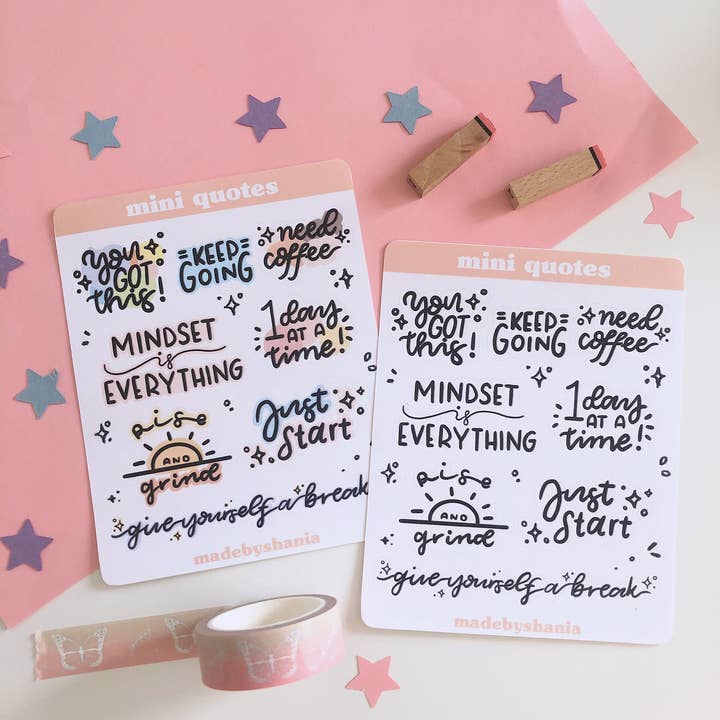 mini quotes
you
GOT
this!
KEEP
GOING
need
coffee
MINDSET
is
EVERYTHING
1 day
AT A
time!
rise
AND
grind
Just
Start
give yourself a break
madebyshania
mini quotes
you
GOT
this!
KEEP
GOING
need
coffee
MINDSET
is
EVERYTHING
1 day
AT A
time!
rise
AND
grind
Just
Start
give yourself a break
madebyshania